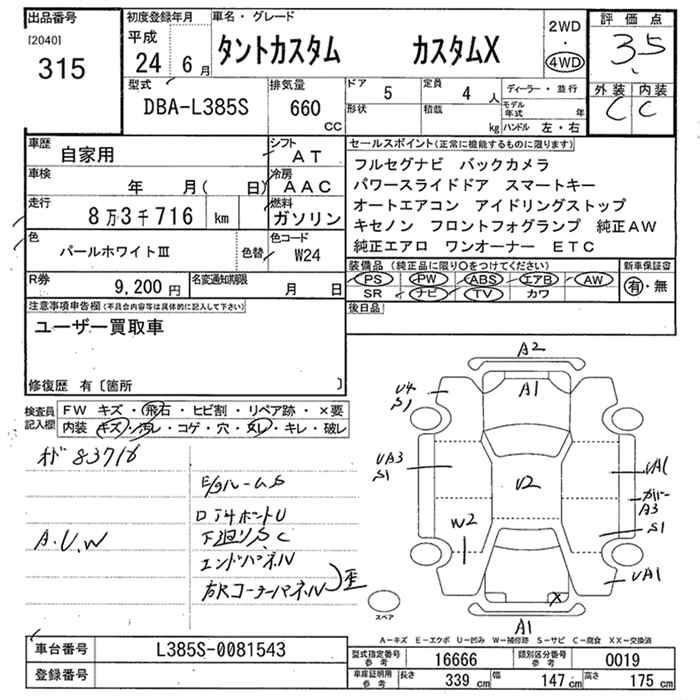 出品番号
[2040]
315
初度登録年月
平成
24 6月
車名・グレード
タントカスタム カスタムX
2WD
・
4WD
評価点
3.5
外装 内装
C C
型式
DBA-L385S
排気量
660
CC
ドア 5
定員 4 人
形状
積載 kg
ディーラー・並行
モデル年式 年
ハンドル 左・右
車歴
自家用
シフト
AT
車検
年 月( 日)
冷房
AAC
走行
8万3千716 km
燃料
ガソリン
色
パールホワイトⅢ
色替
色コード
W24
R券
9,200円
名変通知期限
月 日
セールスポイント(正常に機能するものに限ります)
フルセグナビ バックカメラ
パワースライドドア スマートキー
オートエアコン アイドリングストップ
キセノン フロントフォグランプ 純正AW
純正エアロ ワンオーナー ETC
装備品(純正品に限り○をつけてください)
新車保証書
PS PW ABS エアB AW
SR ナビ TV カワ
有・無
後日品
注意事項申告欄(不具合内容等は具体的に記入して下さい)
ユーザー買取車
修復歴 有〔箇所 〕
検査員記入欄
FW キズ・飛石・ヒビ割・リペア跡・×要
内装 キズ・汚レ・コゲ・穴・スレ・キレ・破レ
オド 83716
E/gルームS
ロ
下廻りS C
A.U.W
エンドパネル
右Rコーナーパネル) 歪
A2
A1
U4
S1
UA3
S1
U2
UA1
カバー
A3
S1
W2
UA1
X
A1
スペア
A-キズ E-エクボ U-凹み W-補修跡 S-サビ C-腐食 XX-交換済
車台番号
L385S-0081543
登録番号
型式指定番号 参考 16666
類別区分番号 参考 0019
車庫証明用 参考
長さ 339 cm 幅 147 cm 高さ 175 cm